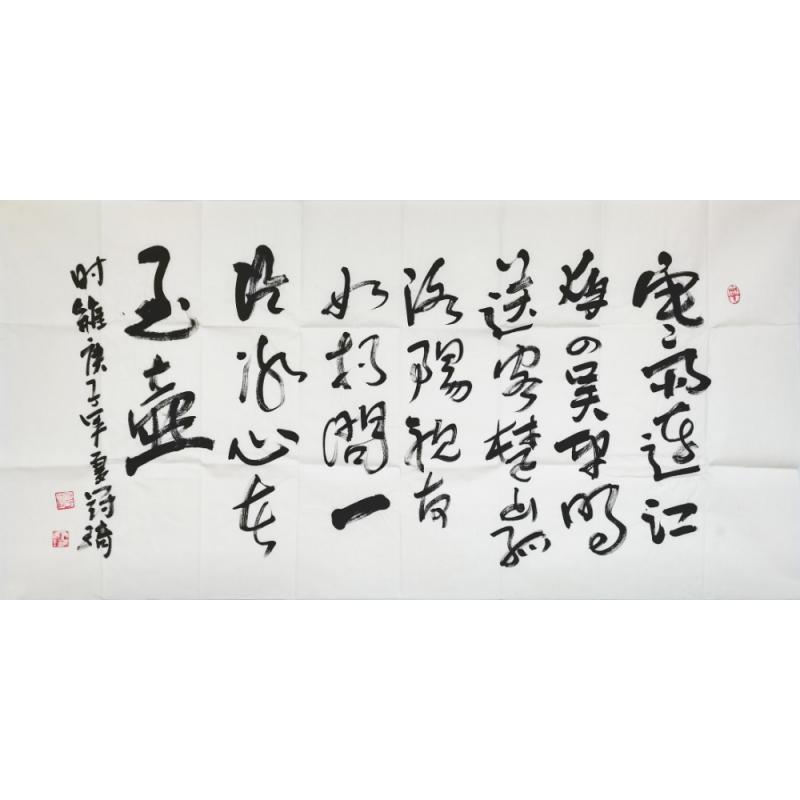 寒雨連江
夜入吴平明
送客楚山孤
洛陽親友
如相問一
片冰心在
玉壺
时維庚子年夏琦